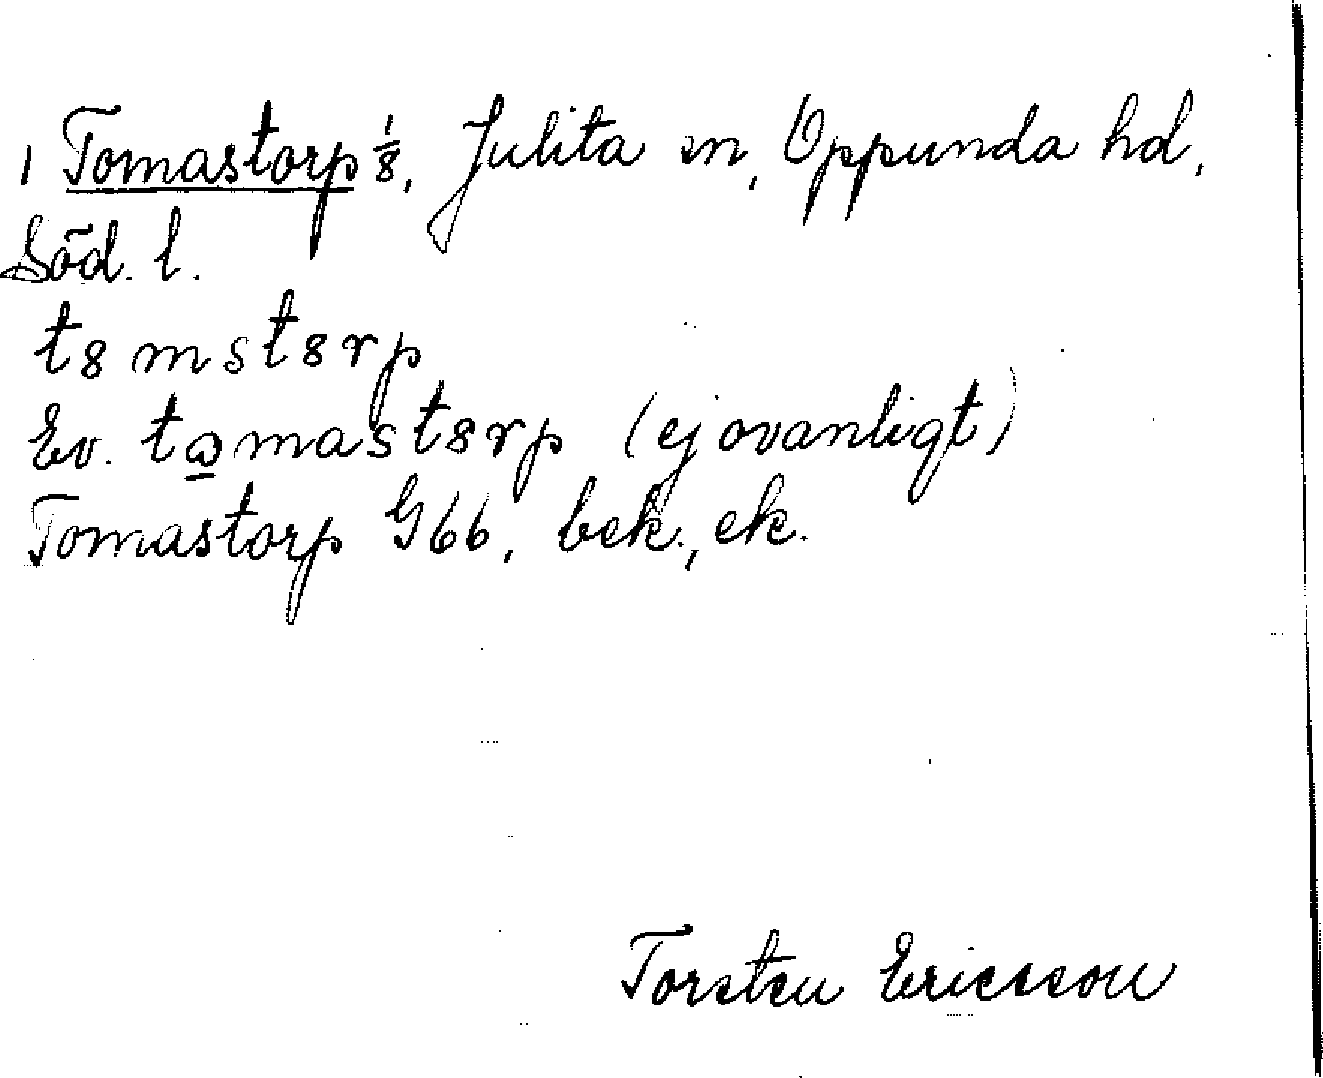 1 Tomastorp 1/8, Julita sn, Oppunda hd,
Söd. l.
t8mst8rp
Ev. tωmast8rp (ej ovanligt)
Tomastorp G66, bek., ek.
Torsten Ericsson